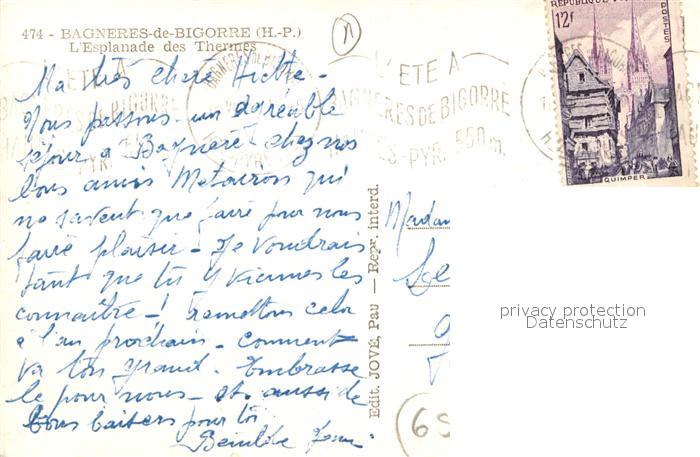 474 - BAGNERES-de-BIGORRE (H.-P.)
L'Esplanade des Thermes
REPUBLIQUE
12F
POSTES
QUIMPER
L'ETE A
BAGNERES DE BIGORRE
HAUTES-PYR. 550 m.
Ma très chère
Nous passons un agréable
séjour à Bagnère chez nos
bons amis qui
ne savent que faire pour nous
faire plaisir - Je voudrais
tant que tu y viennes les
connaître - ! remettons cela
à l'an prochain - comment
va ton grand. Embrasse
le pour nous - et aussi de
bons baisers pour toi
Edit. JOVÉ, Pau — Repr. interd.
Madam
privacy protection
Datenschutz